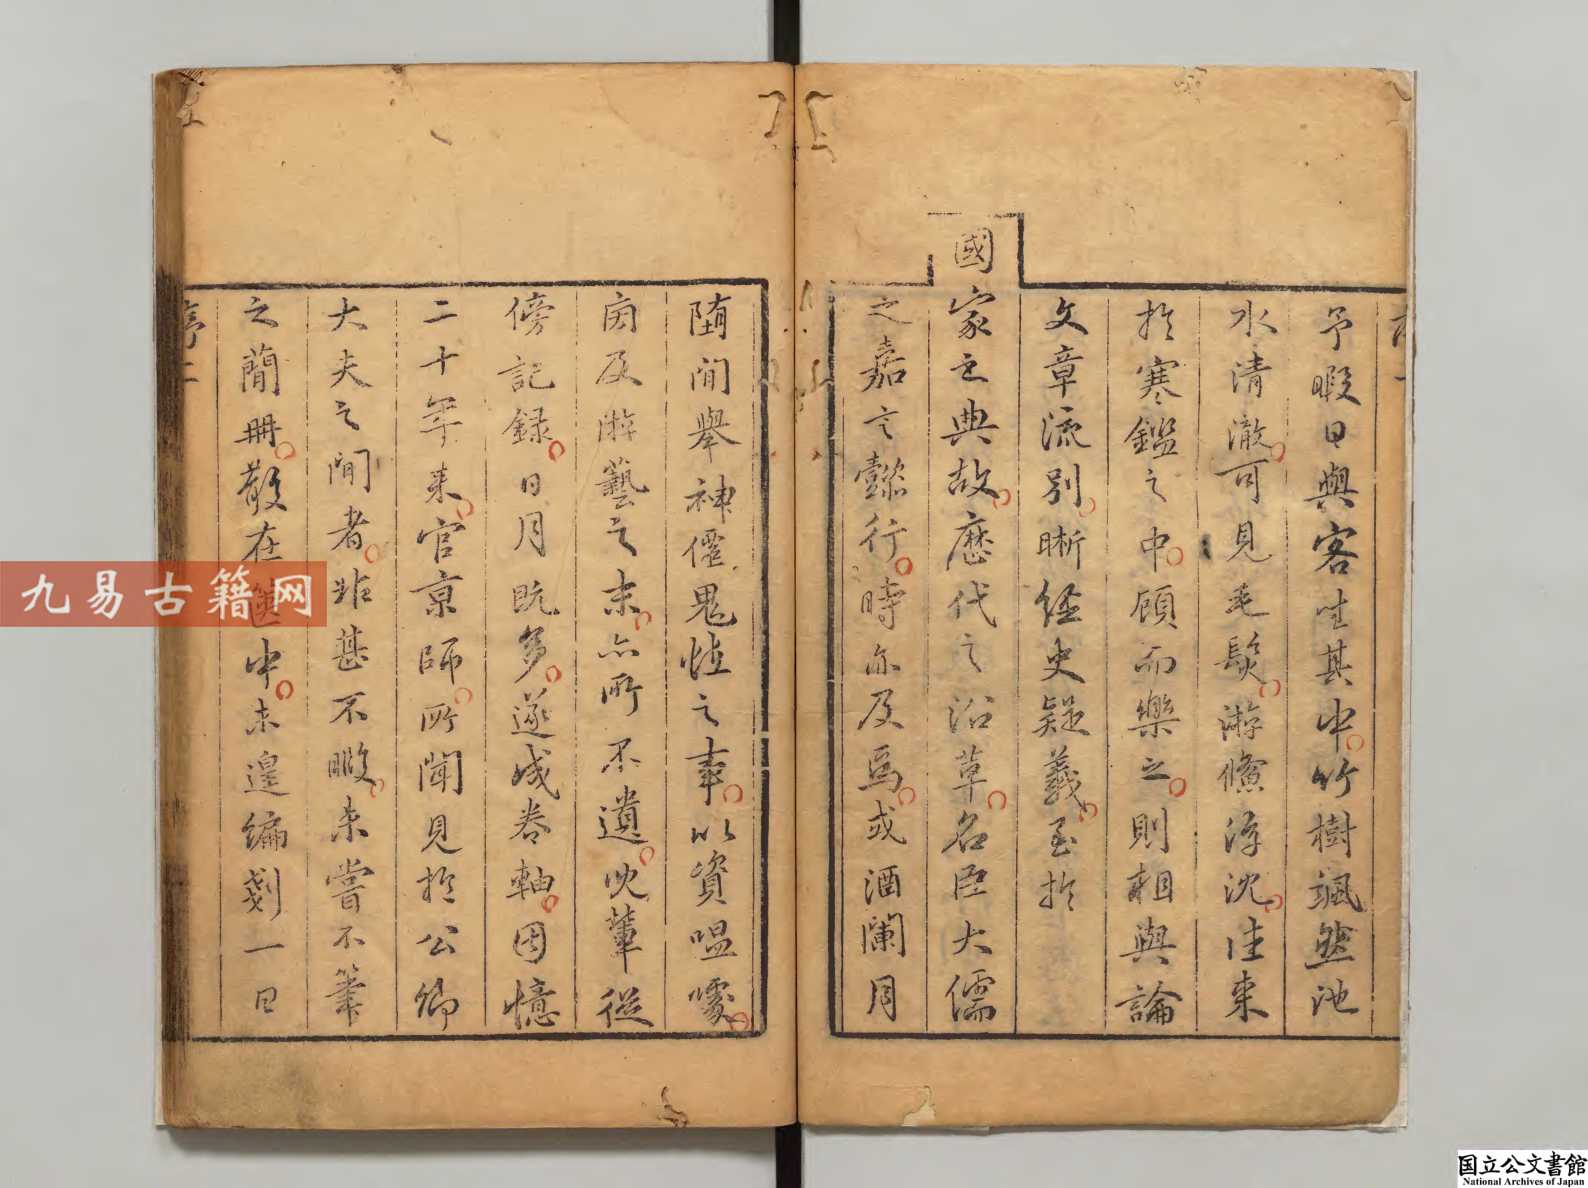 予暇日與客坐其中竹樹颯然池
水清澈可見毛髮游鯈浮沈往来
於寒鑑之中顧而樂之則相與論
文章流別晰經史疑義至於
國家之典故歷代之沿革名臣大儒
之嘉言懿行時亦及焉或酒闌月
墮間舉神僊鬼怪之事以資嗢噱
因及游藝之末亦所不遺兒輩從
傍記録日月既多遂成卷軸因憶
二十年来官京師所聞見於公卿
大夫之間者非甚不暇未嘗不筆
之簡冊散在篋中未遑編剗一日
序二
九易古籍网
国立公文書館
National Archives of Japan